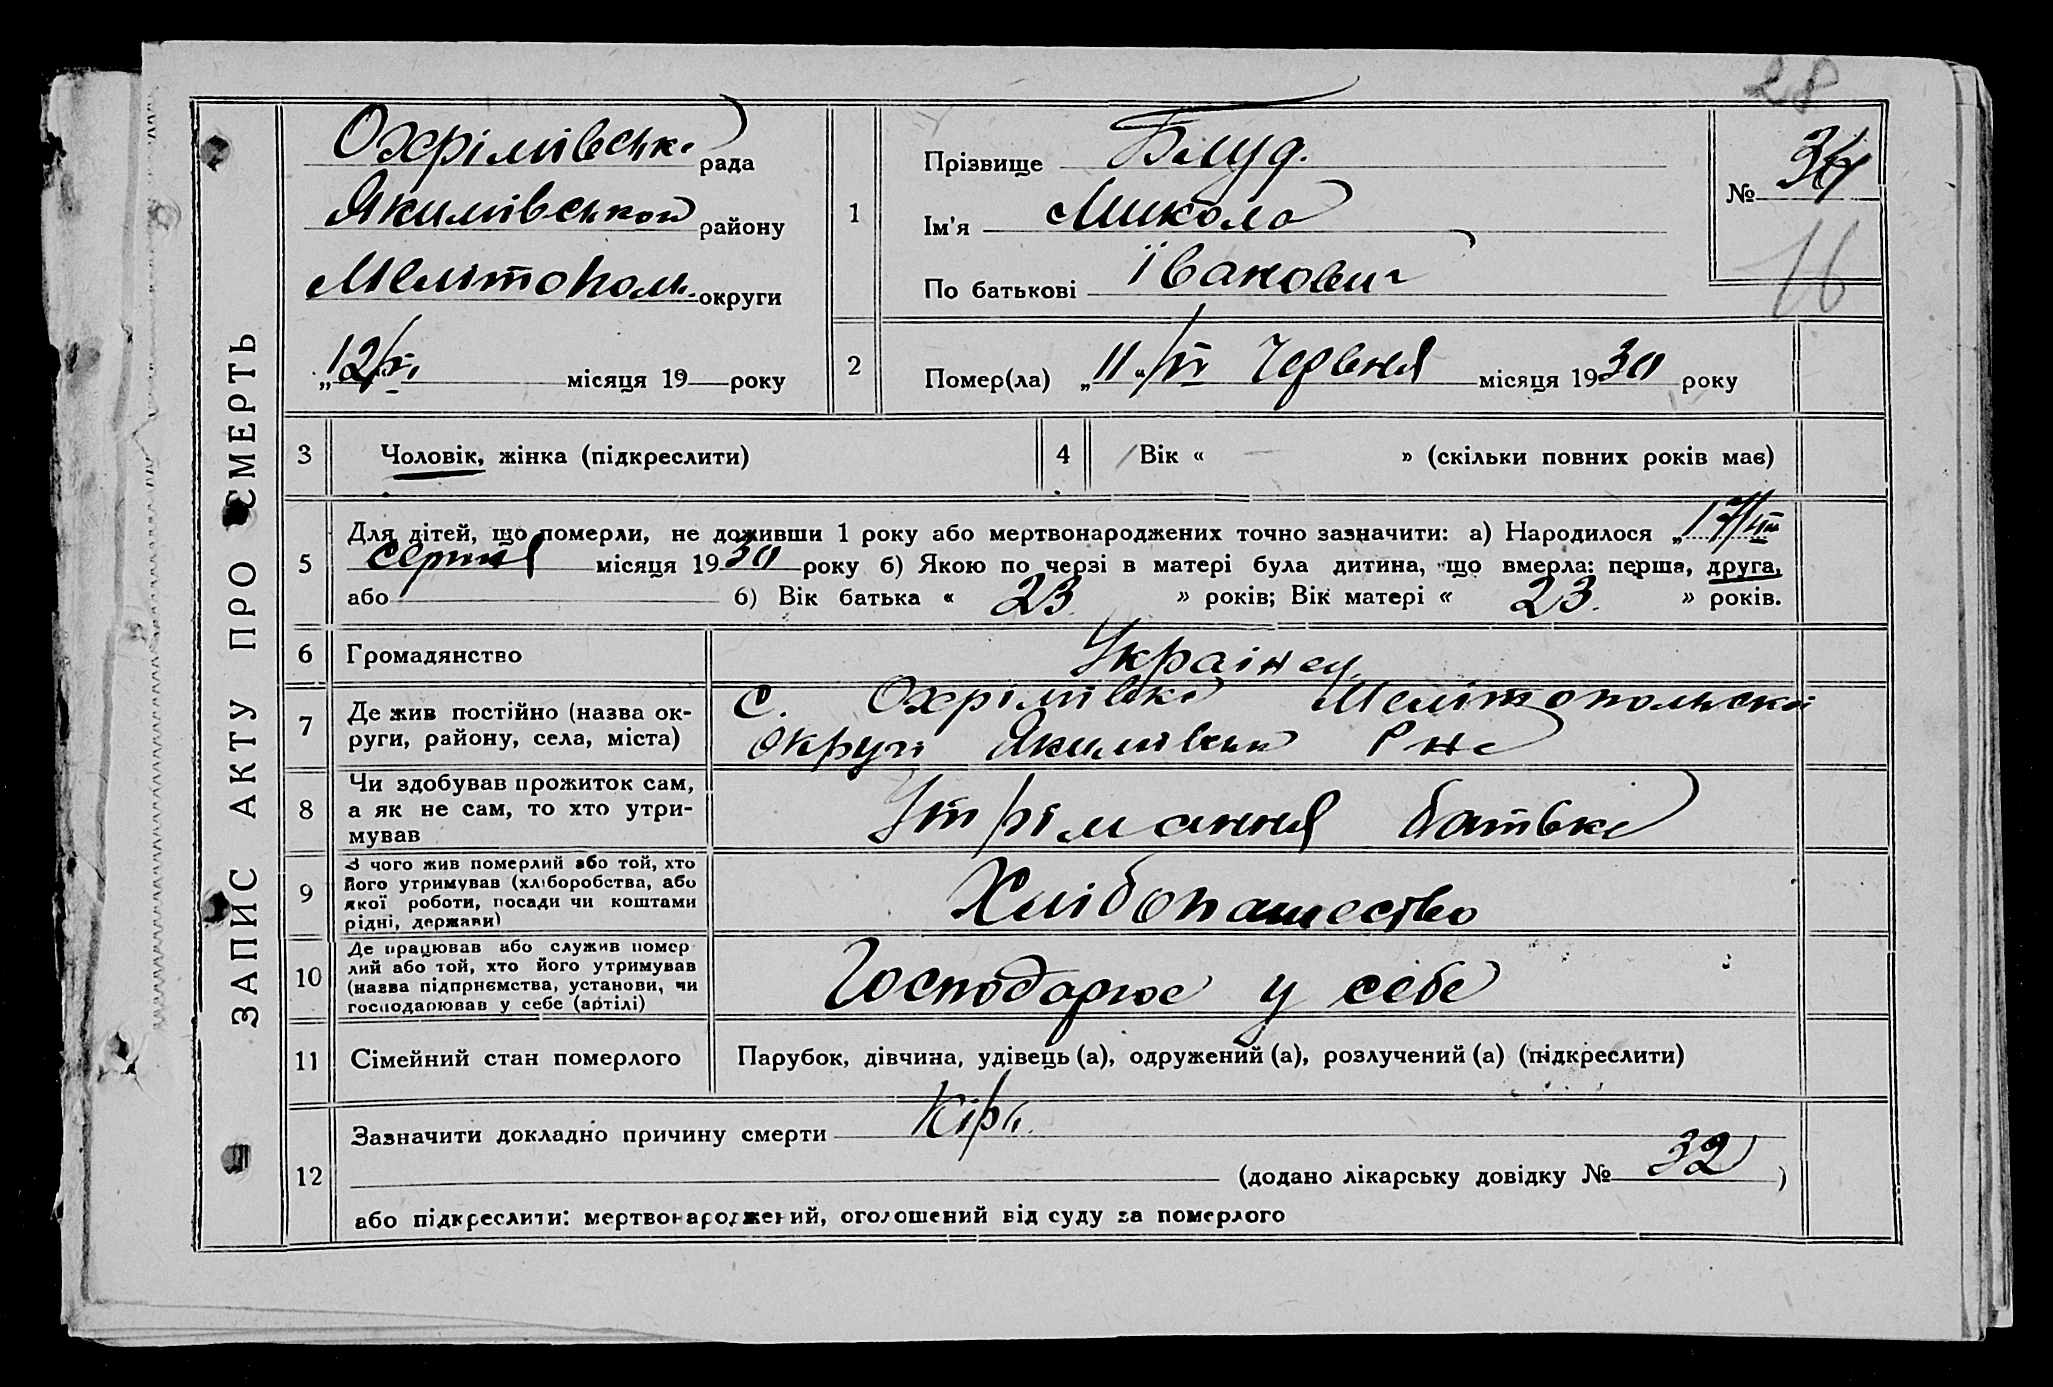 28
ЗАПИС АКТУ ПРО СМЕРТЬ
Охрімівська рада
Якимівськой району
Мелітополь. округи
„12/VI місяця 19 року
1
Прізвище Блуд.
Ім'я Микола
По батькові Іванович
№ 34
16
2
Помер(ла) „11“/VI Червня місяця 1930 року
3
Чоловік, жінка (підкреслити)
4
Вік « — » (скільки повних років має)
5
Для дітей, що померли, не доживши 1 року або мертвонароджених точно зазначити: а) Народилося „17/
серпня місяця 1930 року б) Якою по черзі в матері була дитина, що вмерла: перша, друга,
або 6) Вік батька « 23 » років; Вік матері « 23. » років.
6
Громадянство
Українец
7
Де жив постійно (назва ок-
руги, району, села, міста)
с. Охрімівка Мелітопольскої
округи Якимівськ Р на
8
Чи здобував прожиток сам,
а як не сам, то хто утри-
мував
Утрімання батька
9
З чого жив померлий або той, хто
його утримував (хліборобства, або
якої роботи, посади чи коштами
рідні, держави)
Хлібопашество
10
Де працював або служив помер
лий або той, хто його утримував
(назва підприємства, установи, чи
господарював у себе (артілі)
Господарює у себе
11
Сімейний стан померлого
Парубок, дівчина, удівець (а), одружений (а), розлучений (а) (підкреслити)
12
Зазначити докладно причину смерти Кірь.
(додано лікарську довідку № 32 )
або підкреслити: мертвонароджений, оголошений від суду за померлого